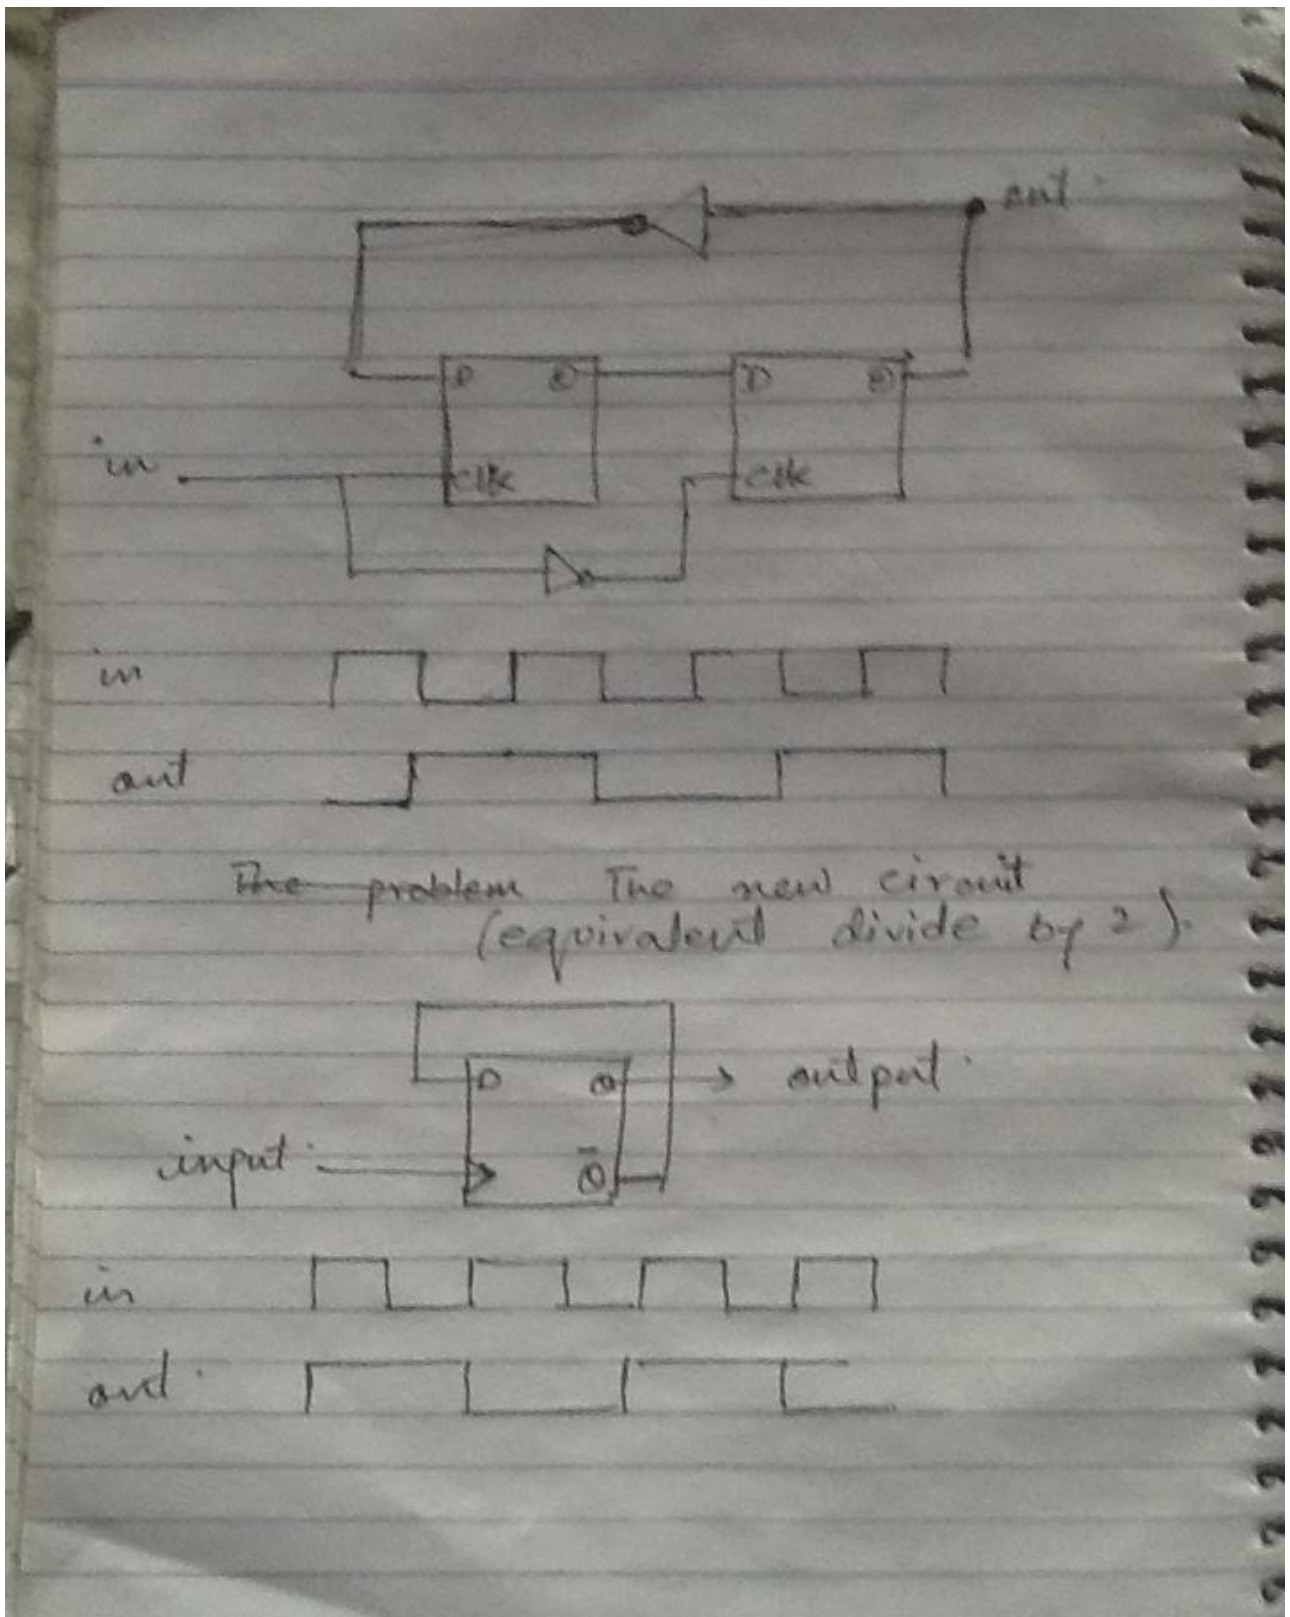 out.
D Q D Q
in
Clk Clk
in
out
The problem The new circuit
(equivalent divide by 2).
D Q output.
input. Q̅
in
out.